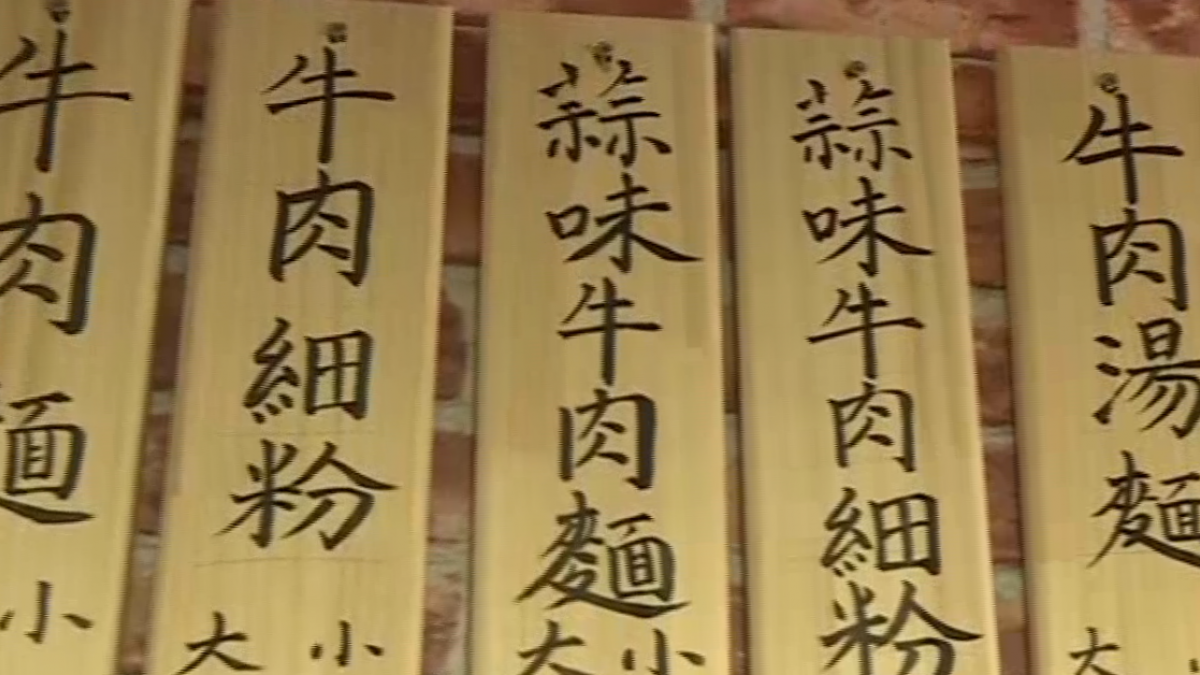 牛肉麵
小
牛肉細粉
大 小
蒜味牛肉麵
大 小
蒜味牛肉細粉
牛肉湯麵
大